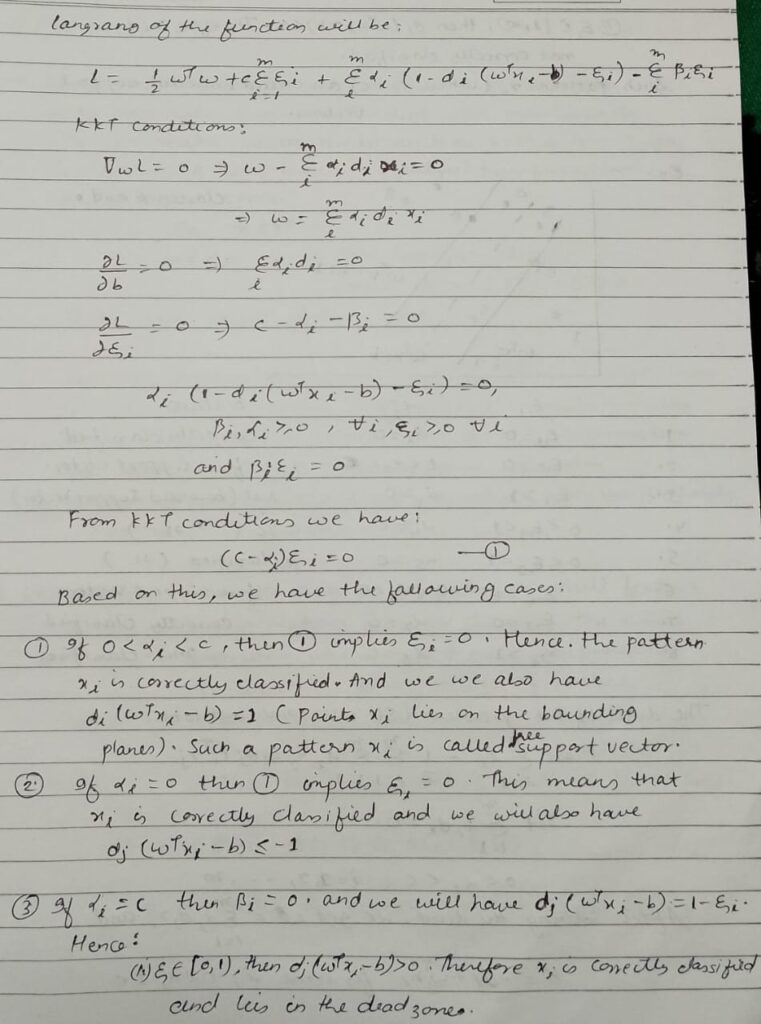 Langrang of the function will be:
L = 1/2 wᵀw + c Σᵐᵢ₌₁ ξᵢ + Σᵐᵢ αᵢ (1 - dᵢ (wᵀxᵢ - b) - ξᵢ) - Σᵐᵢ βᵢξᵢ
KKT conditions:
∇wL = 0 ⇒ w - Σᵐᵢ αᵢ dᵢ xᵢ = 0
⇒ w = Σᵐᵢ αᵢ dᵢ xᵢ
∂L/∂b = 0 ⇒ Σᵢ αᵢ dᵢ = 0
∂L/∂ξᵢ = 0 ⇒ c - αᵢ - βᵢ = 0
αᵢ (1 - dᵢ (wᵀxᵢ - b) - ξᵢ) = 0,
βᵢ, αᵢ ≥ 0 , ∀i , ξᵢ ≥ 0 ∀i
and βᵢξᵢ = 0
From KKT conditions we have:
(C - αᵢ) ξᵢ = 0 — ①
Based on this, we have the fallowing cases:
① If 0 < αᵢ < c, then ① implies ξᵢ = 0. Hence. the pattern
xᵢ is correctly classified. And we we also have
dᵢ (wᵀxᵢ - b) = 1 (Points xᵢ lies on the bounding
planes). Such a pattern xᵢ is called free support vector.
② If αᵢ = 0 then ① implies ξᵢ = 0. This means that
xᵢ is correctly classified and we will also have
dᵢ (wᵀxᵢ - b) ≤ -1
③ If αᵢ = c then βᵢ = 0. and we will have dᵢ (wᵀxᵢ - b) = 1 - ξᵢ.
Hence:
(i) ξ ∈ [0, 1), then dᵢ (wᵀxᵢ - b) > 0. Therefore xᵢ is correctly classified
and lies in the dead zone.